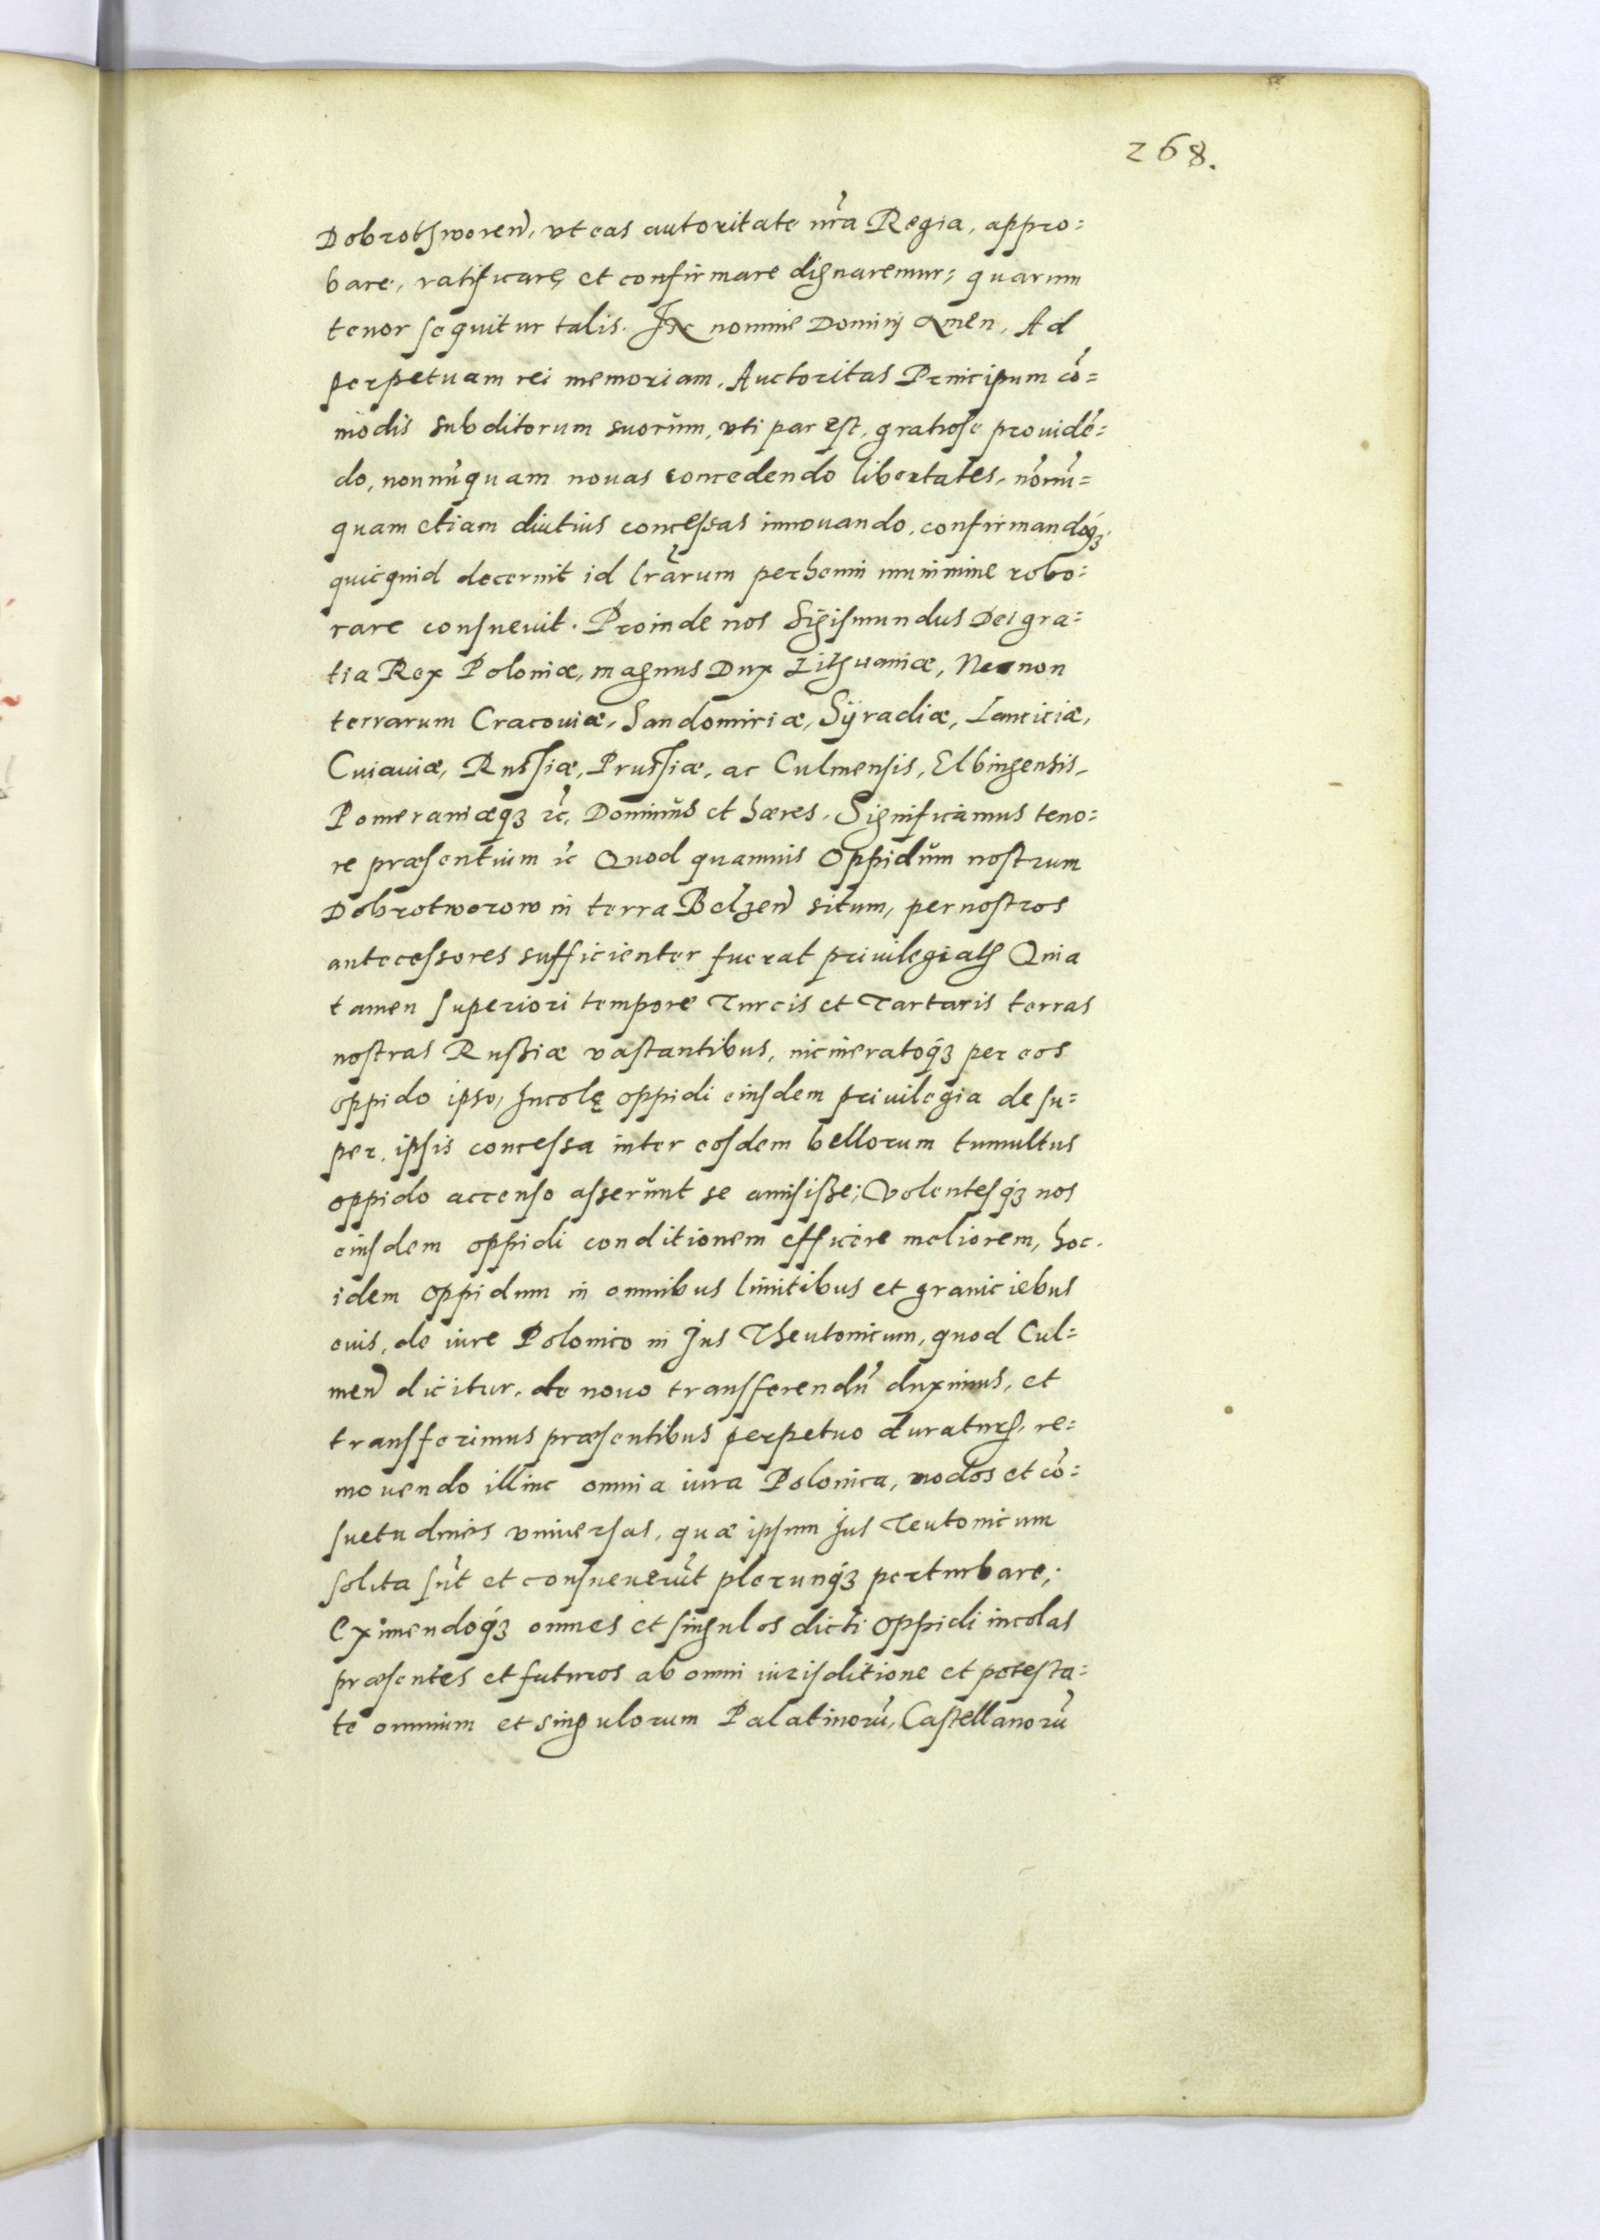 268.
Dobrothworen̄, vt eas autoritate nr̃a Regia, appro=
bare, ratificare, et confirmare dignaremur; quarum
tenor sequitur talis. In nomine Dominj Amen. Ad
perpetuam rei memoriam. Auctoritas Principum cõ=
modis subditorum suorum, vti par est, gratiose prouidẽ=
do, nonnũquam nouas concedendo libertates, nõnũ=
quam etiam diutius concessas innouando, confirmandoq́ꝫ
quicquid decernit id lr̃arum perhenni munimine robo:
rare consueuit. Proinde nos Sigismundus Dei gra=
tia Rex Poloniæ, magnus Dux Lithuaniæ, Necnon
terrarum Cracouiæ, Sandomiriæ, Syradiæ, Lanciciæ,
Cuiauiæ, Russiæ, Prussiæ, ac Culmensis, Elbingensis,
Pomeraniæqꝫ ꝛc̃. Dominus et hæres. Significamus teno=
re præsentium ꝛc̃ Quod quamuis Oppidum nostrum
Dobrotworow in terra Belzen̄ situm, per nostros
antecessores sufficienter fuerat priuilegiatꝫ Quia
tamen superiori tempore Turcis et Tartaris terras
nostras Russiæ vastantibus, incineratoq́ꝫ per eos
oppido ipso, Incolę oppidi eiusdem priuilegia desu=
per, ipsis concessa inter eosdem bellorum tumultus
oppido accenso asserunt se amisisse; Volentesq́ꝫ nos
eiusdem oppidi conditionem efficere meliorem, hoc
idem oppidum in omnibus limitibus et graniciebus
euis, de iure Polonico in Jus Theutonicum, quod Cul=
men̄ dicitur, de nouo transferendũ duximus, et
transferimus præsentibus perpetuo duraturꝫ, re=
mouendo illinc omnia iura Polonica, modos et cõ=
suetudines vniuersas, quæ ipsum Jus Teutonicum
solita sũt et consueuerũt plerunq́ꝫ perturbare;
Eximendoq́ꝫ omnes et singulos dicti Oppidi incolas
præsentes et futuros ab omni iurisditione et potesta=
te omnium et singulorum Palatinorũ, Castellanorũ